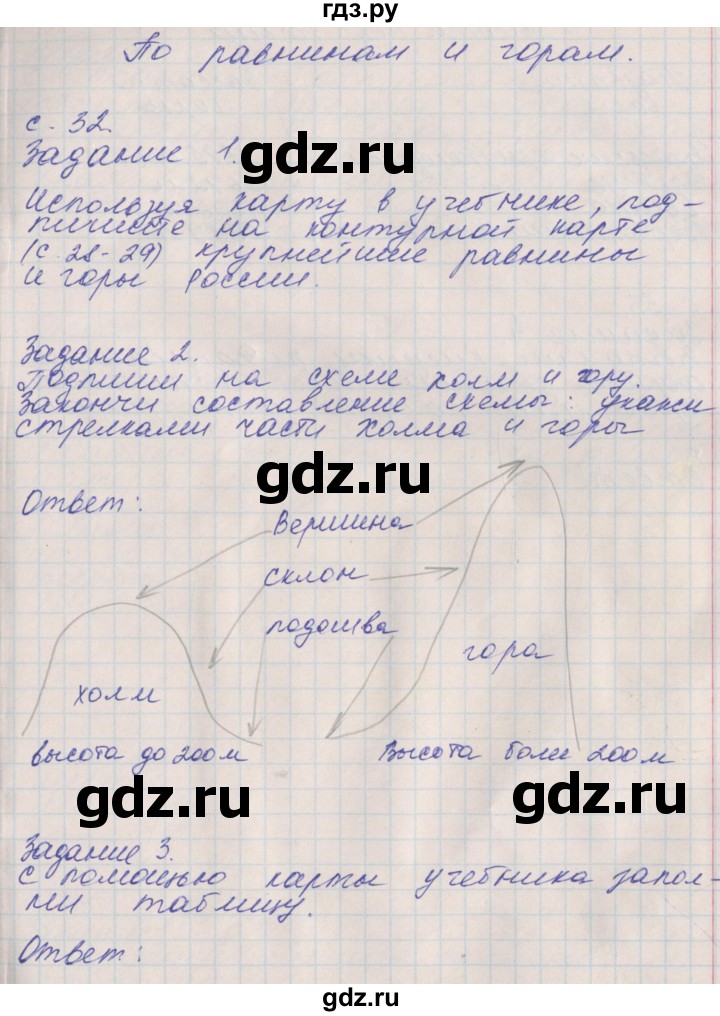 гдз.ру
По равнинам и горам.
с. 32.
Задание 1.
gdz.ru
Используя карту в учебнике, под-
пишите на контурной карте
(с. 28-29) крупнейшие равнины
и горы России.
Задание 2.
Подпиши на схеме холм и гору.
Закончи составление схемы: укажи
стрелками части холма и горы
gdz.ru
Ответ:
Вершина
склон
подошва
гора
холм
высота до 200 м
Высота более 200 м
gdz.ru
gdz.ru
Задание 3.
С помощью карты учебника запол-
ни таблицу.
Ответ:
gdz.ru